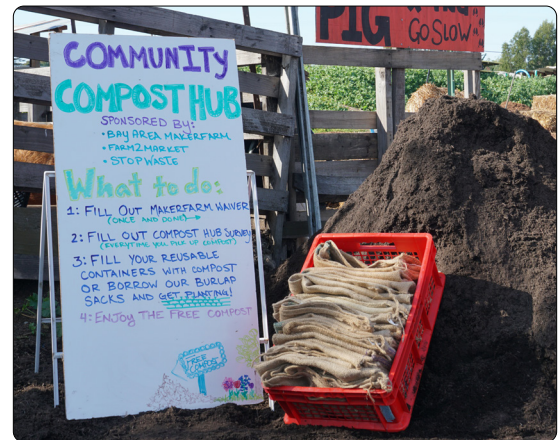 PIG
GO SLOW
COMMUNITY
COMPOST HUB
SPONSORED BY:
• BAY AREA MAKERFARM
• FARM2MARKET
• STOPWASTE
What to do:
1: FILL OUT MAKERFARM WAIVER
(ONCE AND DONE)
2: FILL OUT COMPOST HUB SURVEY
(EVERYTIME YOU PICK UP COMPOST)
3: FILL YOUR REUSABLE
CONTAINERS WITH COMPOST
OR BORROW OUR BURLAP
SACKS AND GET PLANTING!
4: ENJOY THE FREE COMPOST
FREE
COMPOST